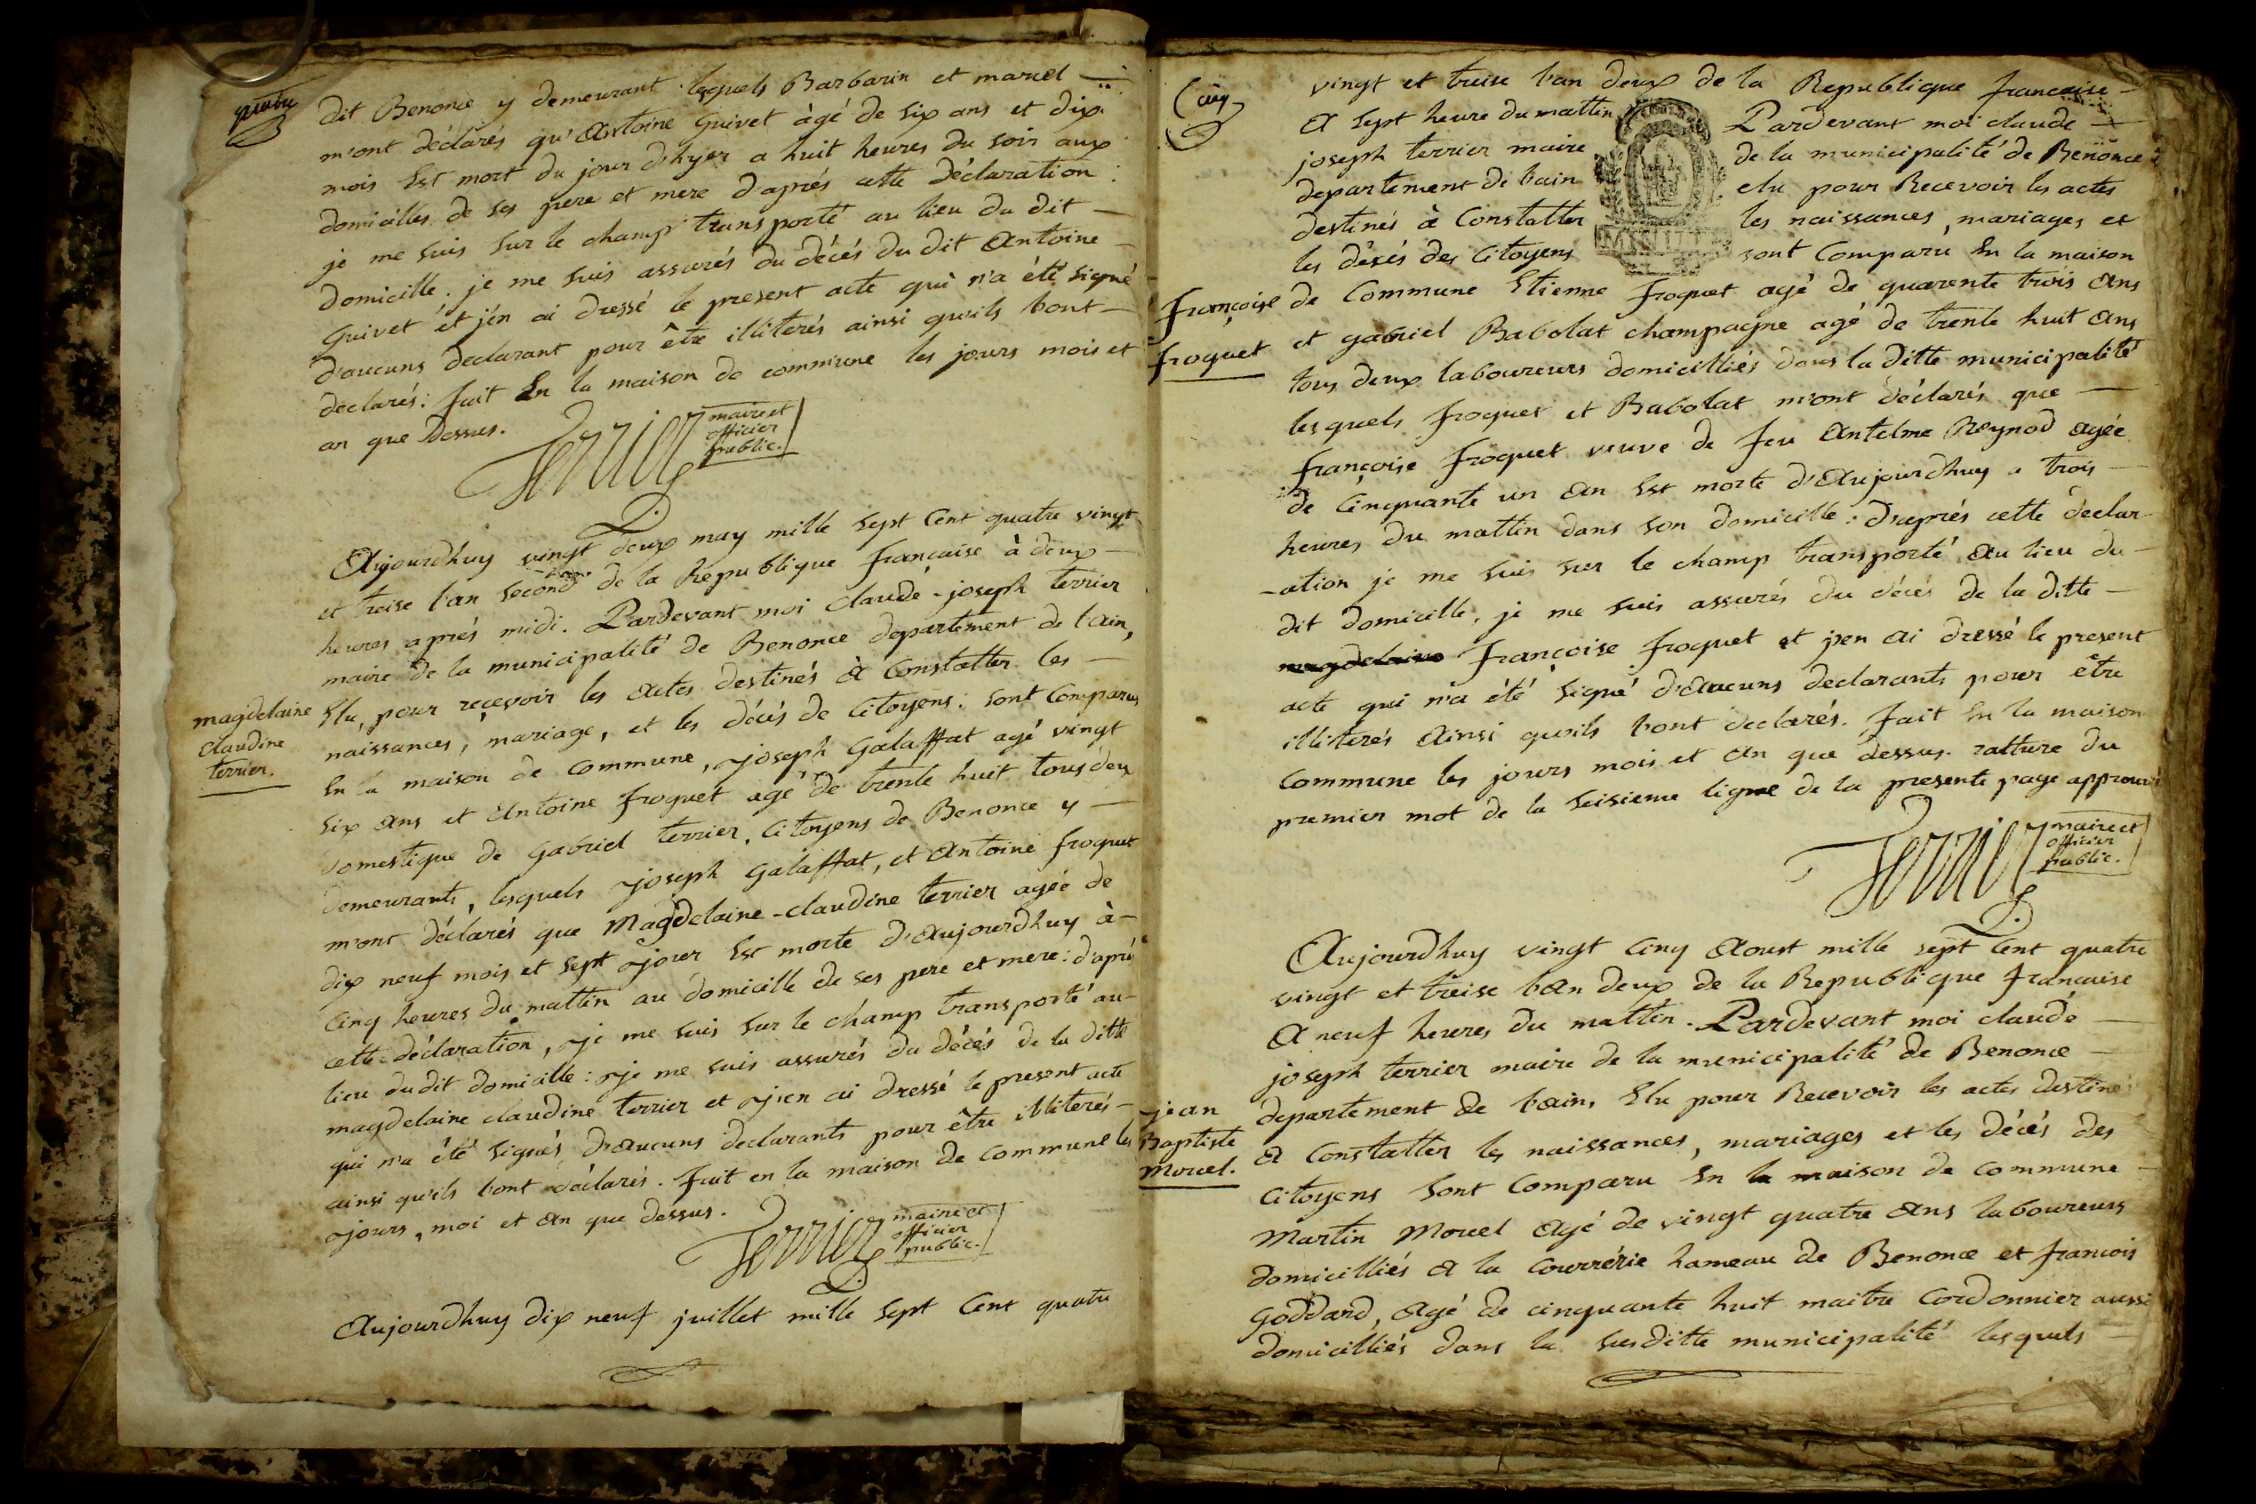 quatre
dit Benonce y demeurant lesquels Barbarin et marcel
m'ont déclarés qu'Antoine Guivet àgé de six ans et dix
mois Est mort du jour d'hyer a huit heures du soir aux
domicilles de ses pere et mere d'aprés cette déclaration
je me suis sur le champ transporté au lieu du dit
domicille. je me suis assurés du décés du dit Antoine
Guivet et j'én ai dressé le present acte qui n'a été signé
d'aucuns declarant pour être illiterés ainsi qu'ils l'ont
declarés: fait En la maison de commune les jours mois et
an que dessus.
Terrier maire et
officier
public.
Aujourdhuy vingt deux may mille sept Cent quatre vingt
et treise l'an second de la Republique francaise à deux
heures aprés midi. Pardevant moi Claude-joseph terrier
maire de la municipalité de Benonce departement de l'ain,
Elu, pour reçevoir les actes destinés à Constatter les
naissances, mariage, et les décés de Citoyens: sont Comparus
magdelaine
claudine
terrier.
En la maison de commune, joseph Galaffat agé vingt
six ans et Antoine froquet agé de trente huit tous deux
domestique de Gabriel terrier, Citoyens de Benonce y
demeurants, lesquels joseph Galaffat, et Antoine froquet
m'ont déclarés que Magdelaine-claudine terrier agée de
dix neuf mois et sept jour Est morte d'Aujourdhuy à
Cinq heures du mattin au domicille de ses pere et mere: d'aprés
cette déclaration, je me suis sur le champ transporté au
lieu dudit domicille: je me suis assurés du décés de la ditte
magdelaine claudine terrier et j'en ai dressé le present acte
qui n'a été signés d'Aucuns declarants pour être illiterés
ainsi qu'ils l'ont déclarés. fait en la maison de commune les
jours, moi et an que dessus.
Terrier maire et
officier
public.
Aujourdhuy dix neuf juillet mille sept Cent quatre
Cinq
vingt et treise l'an deux de la Republique francaise
A sept heure du mattin Pardevant moi claude
joseph terrier maire de la municipalité de Benonce
departement de l'ain elu pour Recevoir les actes
destinés à Constatter les naissances, mariages et
les décés des Citoyens sont Comparu En la maison
MINUTE
françoise
froquet
de Commune Etienne froquet agé de quarente trois Ans
et gabriel Babolat champagne agé de trente huit ans
tous deux laboureurs domicilliés dans la ditte municipalité
lesquels froquet et Babolat m'ont déclarés que
françoise froquet veuve de feu Antelme Reynod agée
de Cinquante un an Est morte d'Aujourdhuy a trois
heures du mattin dans son domicille: d'aprés cette déclar-
-ation je me suis sur le champ transporté au lieu du
dit domicille, je me suis assurés du décés de la ditte
magdelaine françoise froquet et j'en ai dressé le present
acte qui n'a été signé d'Aucuns declarants pour être
illiterés Ainsi qu'ils l'ont declarés. fait En la maison
Commune les jours mois et an que dessus. ratture du
premier mot de la seisieme ligne de la presente page approuvé
Terrier maire et
officier
public.
Aujourdhuy vingt Cinq Aoust mille sept Cent quatre
vingt et treise l'an deux de la Republique francaise
A neuf heures du mattin. Pardevant moi claude
joseph terrier maire de la municipalité de Benonce
departement de l'ain, Elu pour Recevoir les actes destiné
jean
Baptiste
Morel.
A Constatter les naissances, mariages et les décés des
Citoyens sont Comparu En la maison de commune
Martin Morel Agé de vingt quatre Ans laboureurs
domicilliés A la Courrérie hameau de Benonce et francois
Goddard, Agé de cinquante huit maitre Cordonnier aussi
domicilliés dans la susditte municipalité lesquels